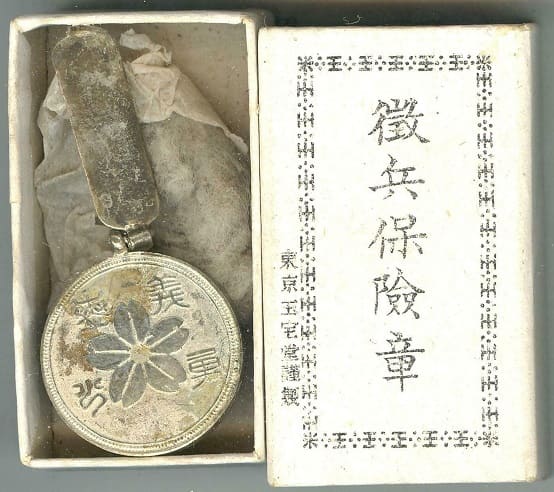 徴兵保險章
東京玉宝堂謹製
義勇
奉公